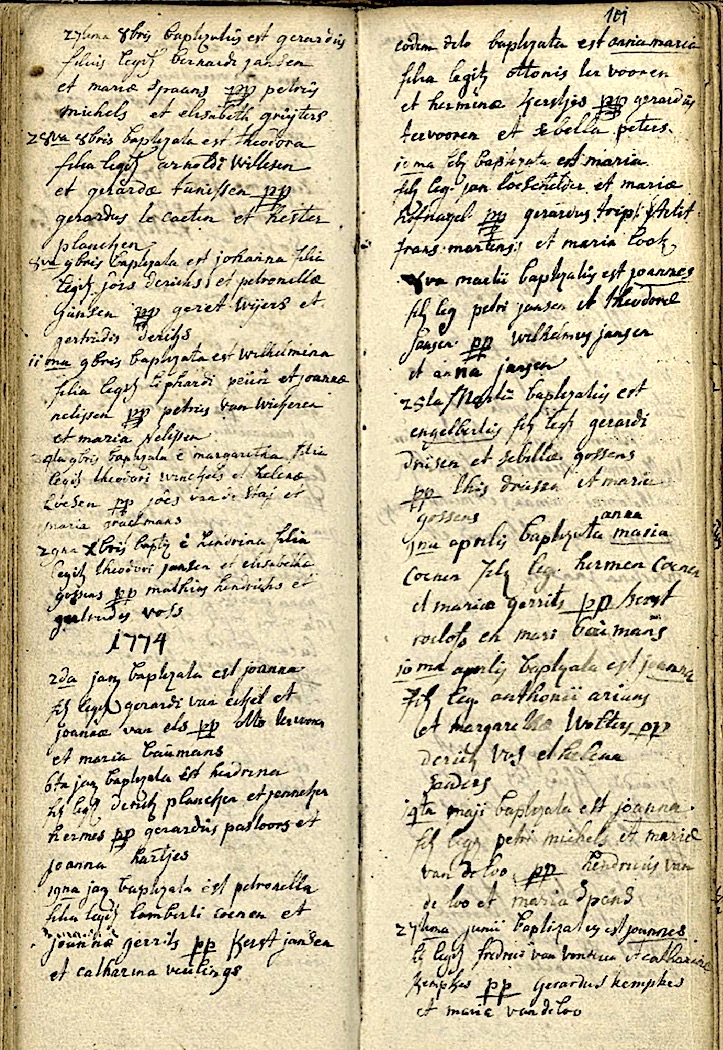 27tima 8bris baptizatus est gerardus
filius legit bernardi jansen
et mariæ spaans pp petrus
michels et elisabeth gruijters
28va 8bris baptizata est theodora
filia legit arnoldi Willesen
et gerardæ tunissen pp
gerardus le caetin et hester
planchen
8va 9bris baptizata est johanna filia
legit jois derichs et petronellæ
jansen pp geret wijers et
gertrudis derichs
11ma 9bris baptizata est wilhelmina
filia legit liphardi peün et joannæ
nelissen pp petrus van wicheren
et maria Nelissen
baptizata e margaretha filia
legit theodori winckels et helenæ
Loesen pp joes van de staj et
maria graetmans
2gna Xbris baptiz e hendrina filia
legit theodori jansen et elisabethæ
gossens pp mathius hendrichs et
gertrudis voss
1774
2da jan baptizata est joanna
fil legit gerardi van eckel et
joannæ van els pp otto tervoren
et maria baümans
6ta jan baptizata est hendrina
fil legit derich plancken et jenneken
hermes pp gerardus pastoors et
joanna hartjes
19na jan baptizata est petronella
filia legit lamberti coenen et
joannæ gerrits pp Kerst jansen
et catharina veulings
101
eodem die baptizata est anna maria
filia legit ottonis ter vooren
et herminæ Kerstjes pp gerardus
tervooren et sebella peters
10ma feb baptizata est maria
fil leg jan loescheider et mariæ
hofnagel pp gerardus
frans martens et maria look
8va martii baptizatus est joannes
fil leg petri jansen et theodoræ
jansen pp wilhelmus jansen
et anna jansen
25ta Martii baptizatus est
engelbertus fil legit gerardi
driesen et sebillæ gossens
pp this driesen et maria
gossens
anna
1ma aprilis baptizata maria
Coenen fil leg hermen Coenen
et mariæ gerrits pp Kerst
roelofs en mari baümans
10ma aprilis baptizata est joanna
fil leg anthonii arians
et margaretæ Wolters pp
derich vos et helena
sanders
19ta maji baptizata est joanna
fil legit petri michels et mariæ
van de loo pp hendricus van
de loo et maria spans
27tima junii baptizatus est joannes
fil legit fredrici van et catharinæ
Kempkes pp gerardus kempkes
et maria van de loo